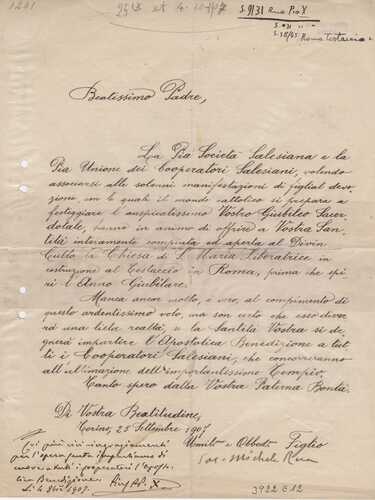 1201
S.9131 Rua Pio X
S. 031 " "
Roma Testaccio
Beatissimo Padre,
La Pia Società Salesiana e la
Pia Unione dei Cooperatori Salesiani, volendo
associarsi alle solenni manifestazioni di figlial devo-
zione, con le quali il mondo cattolico si prepara a
festeggiare l'auspicatissimo Vostro Giubileo Sacer-
dotale, hanno in animo di offrire a Vostra San-
tità interamente compiuta ed aperta al Divin
Culto la Chiesa di S. Maria Liberatrice in
costruzione al Testaccio in Roma, prima che spi-
ri l'Anno Giubilare.
Manca ancor molto, è vero, al compimento di
questo ardentissimo voto, ma son certo che esso diver-
rà una lieta realtà, se la Santità Vostra si de-
gnerà impartire l'Apostolica Benedizione a tut-
ti i Cooperatori Salesiani, che concorreranno
all'ultimazione dell'importantissimo Tempio.
Tanto spero dalla Vostra Paterna Bontà.
Di Vostra Beatitudine,
Torino, 25 Settembre 1907
Umil.º e Obbed.º Figlio
Sac. Michele Rua
Coi più vivi ringraziamenti
per l'opera
Benedizione
1907.
Pius PP. X
3922 E12